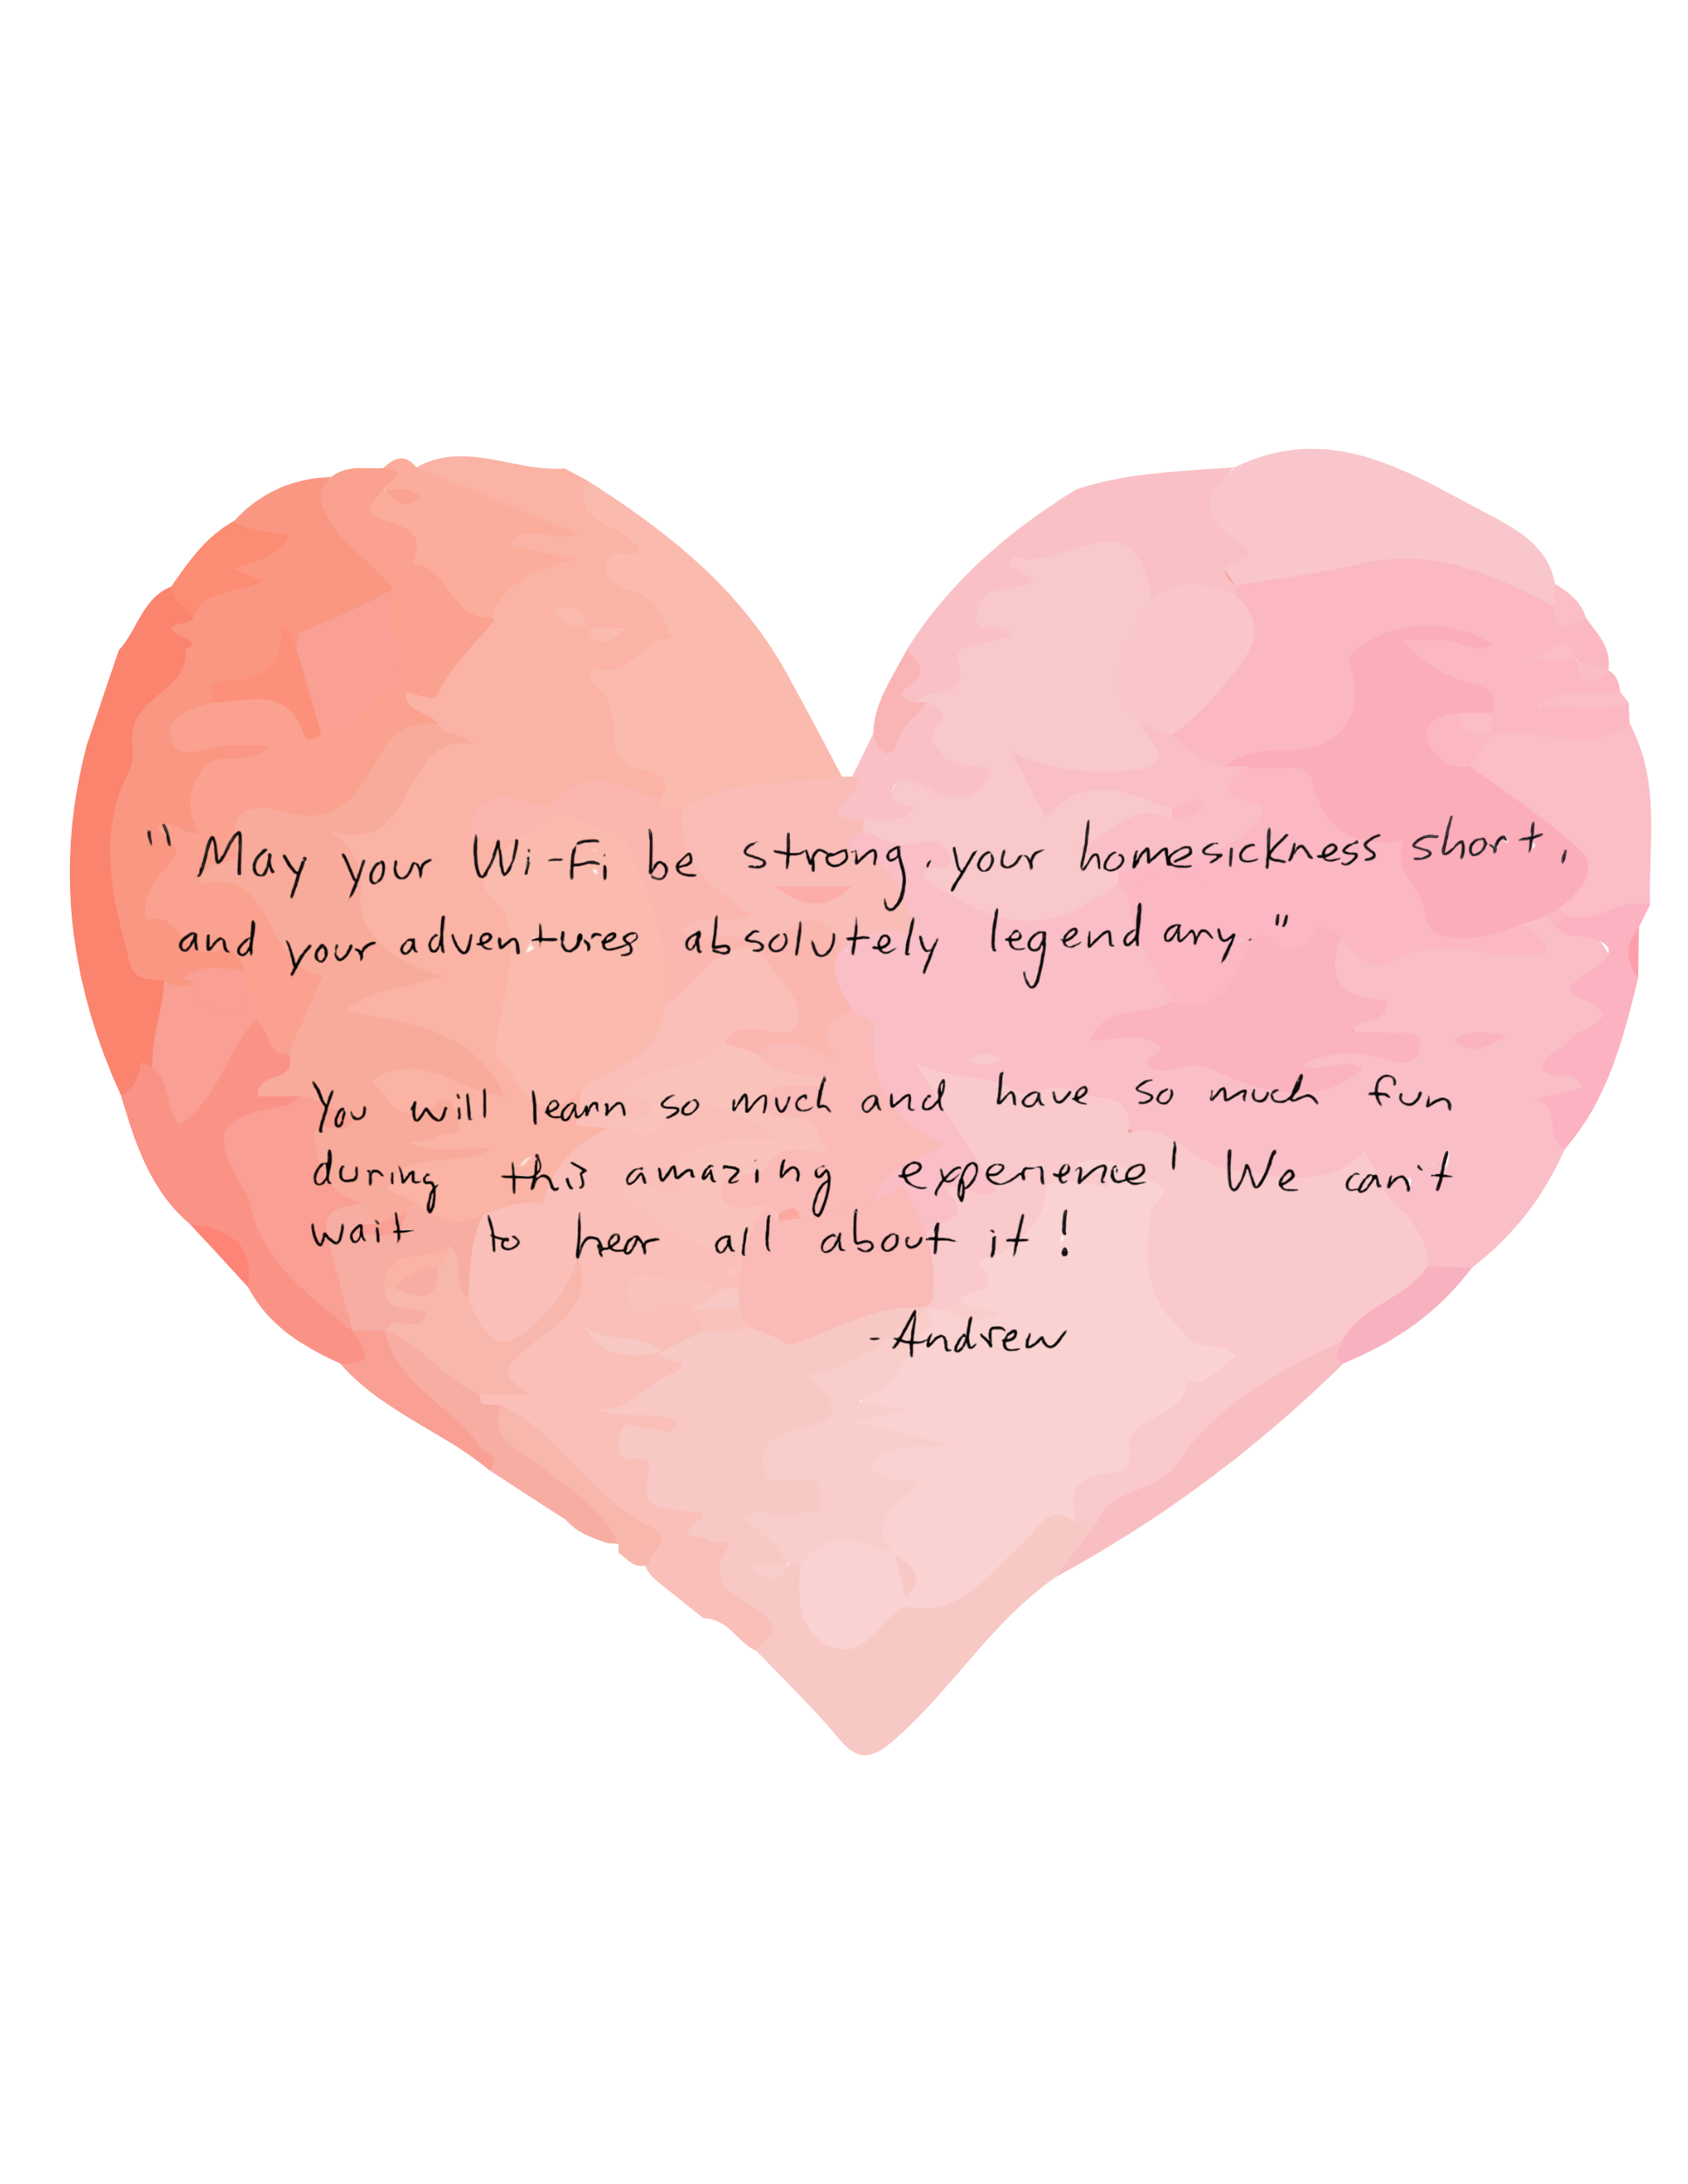 "May your Wi-Fi be strong, your homesickness short,
and your adventures absolutely legendary."
You will learn so much and have so much fun
during this amazing experience! We can't
wait to hear all about it!
-Andrew